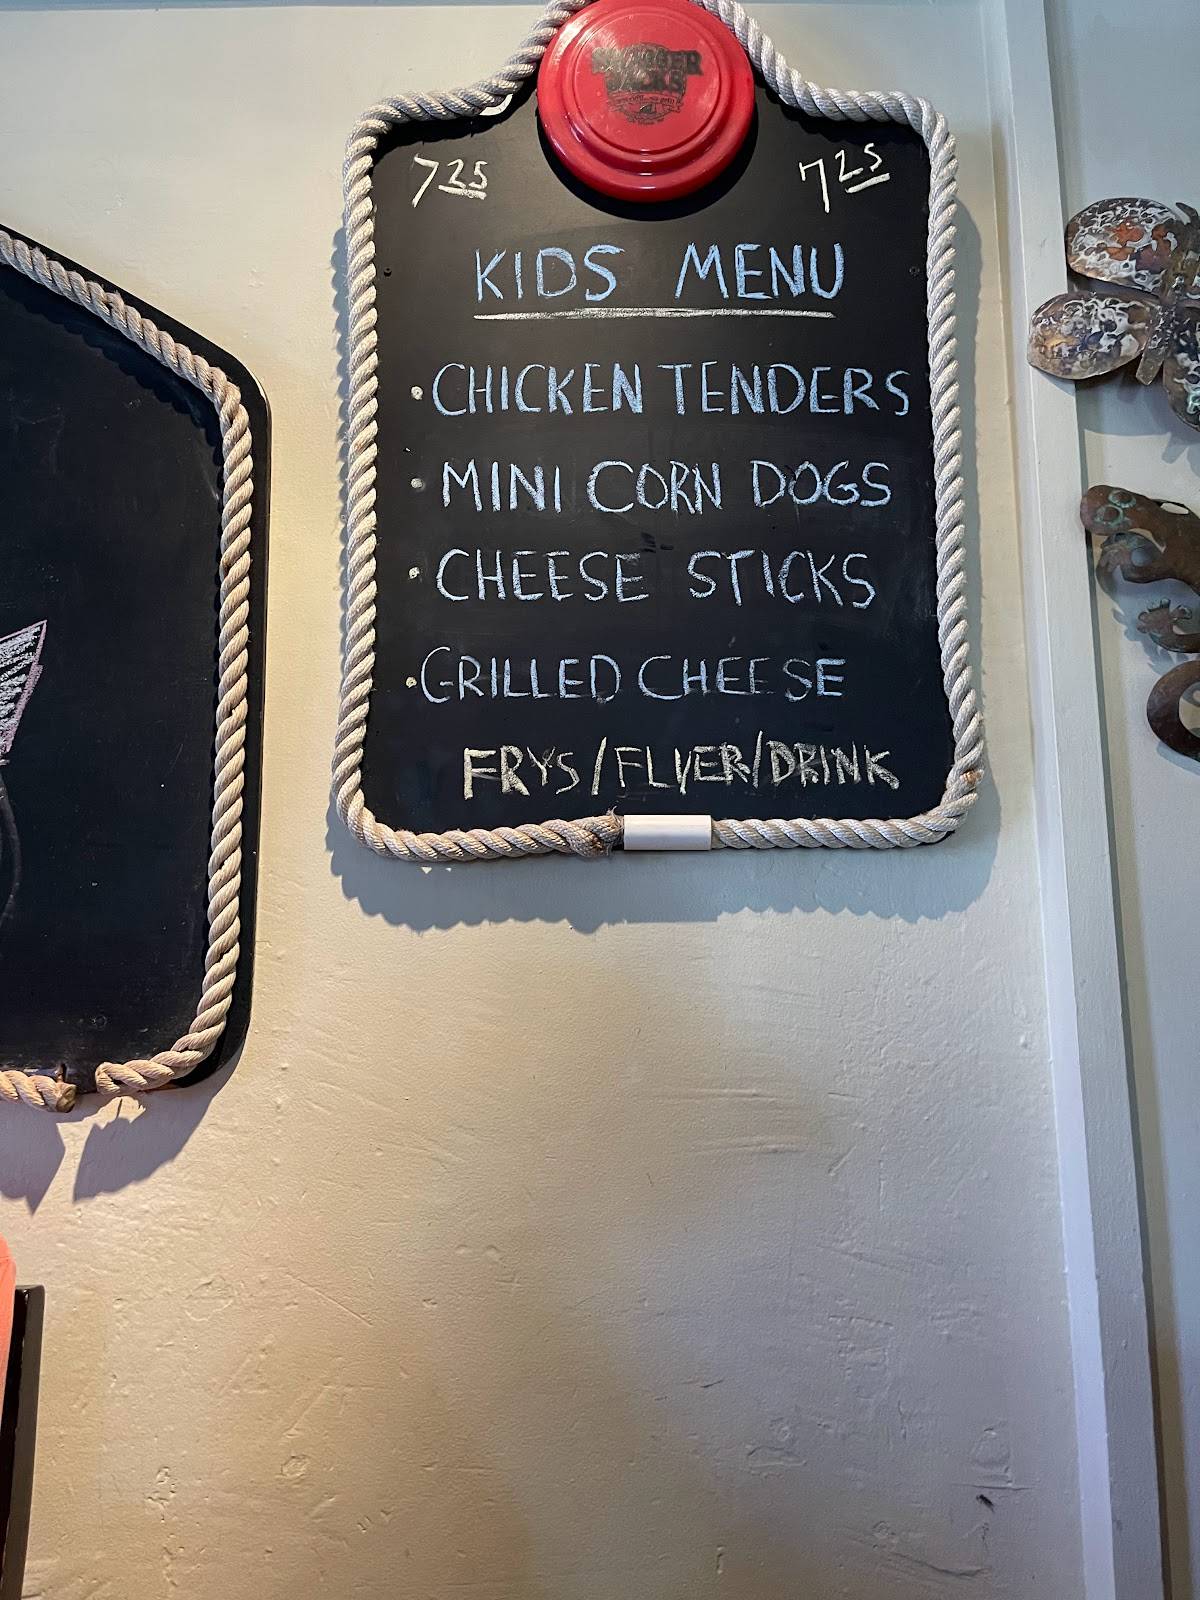 7 25 7 25
KIDS MENU
• CHICKEN TENDERS
• MINI CORN DOGS
• CHEESE STICKS
• GRILLED CHEESE
FRYS/FLYER/DRINK